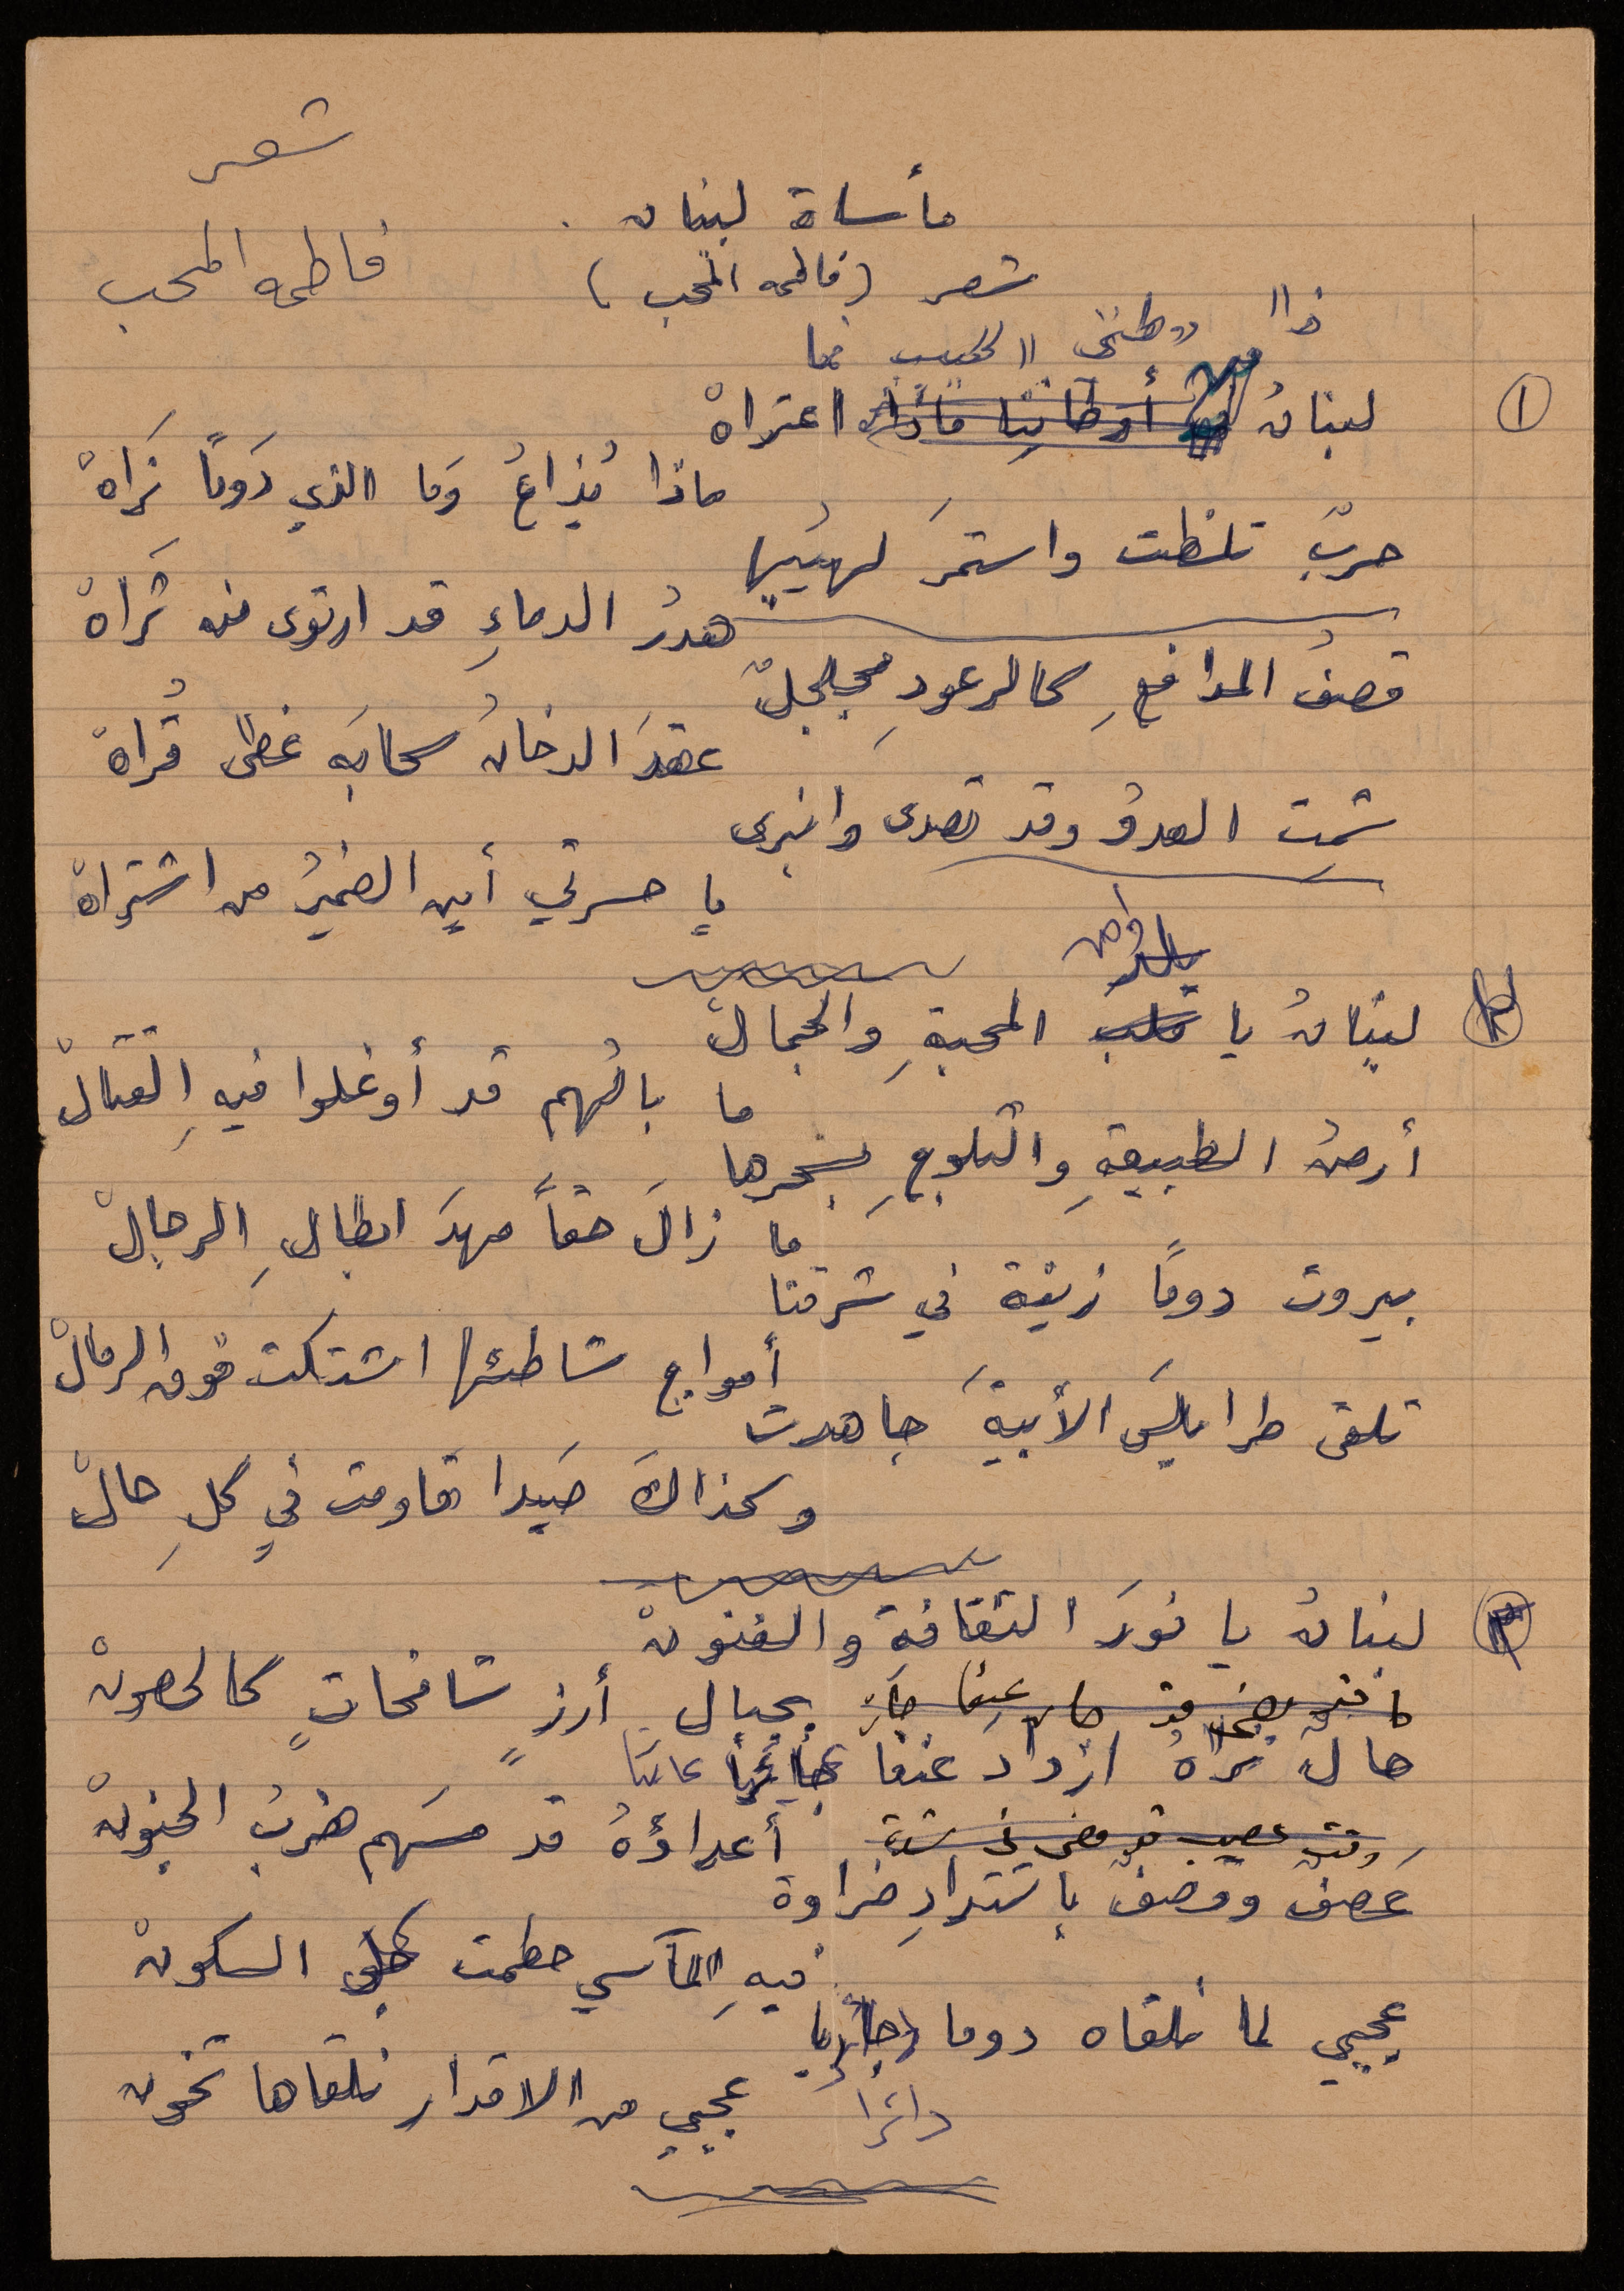 شعر
مأساة لبنان
فاطمه المحب
شعر (فاطمه المحب)
ذا وطني الحبيب فما
① لبنانُ أوطاننا ماذا اعتراهْ
ماذا يُذاعُ وَما الذي دَوماً نَراهْ
حربٌ تلظت واستمرَ لهيبُها
هدرُ الدماءِ قد ارتوى منه ثَراهْ
قصفُ المدافعِ كالرعودِ مجلجلٌ
عقدَ الدخانُ سحابَه غطى قُراهْ
شمِت العدوُ وقد تصدى وانبرى
يا حسرتي أين الضميرُ من اشتراهْ
② لبنانُ يا قلب المحبةِ والجمالْ
ما بالُهم قد أوغلوا فيهِ القتالْ
أرضُ الطبيعةِ والثلوجِ بسحرها
ما زالَ حقاً مهدَ ابطالِ الرجالْ
بيروت دوماً زينة في شرقنا
أمواج شاطئها اشتكت فوق الرمالْ
تلقى طرابلسَ الأبيةَ جاهدت
وكذاكَ صَيدا قاومت في كلِ حالْ
③ لبنانُ يا نورَ الثقافةِ والفنونْ
بجبالِ أرزٍ شامخاتٍ كالحصونْ
حالٌ نراهُ ازداد عنفا عاتيا
وقت عصيب قد مضى في شدة
أعداؤهُ قد مسَهم ضربُ الجنونْ
عَصفٌ وقصفٌ باشتدادِ ضراوة
فيهِ المآسي حطمت كل السكونْ
عجبي لما نلقاه دوما جاريا
دائرا
عجبي من الاقدار نلقاها تخون